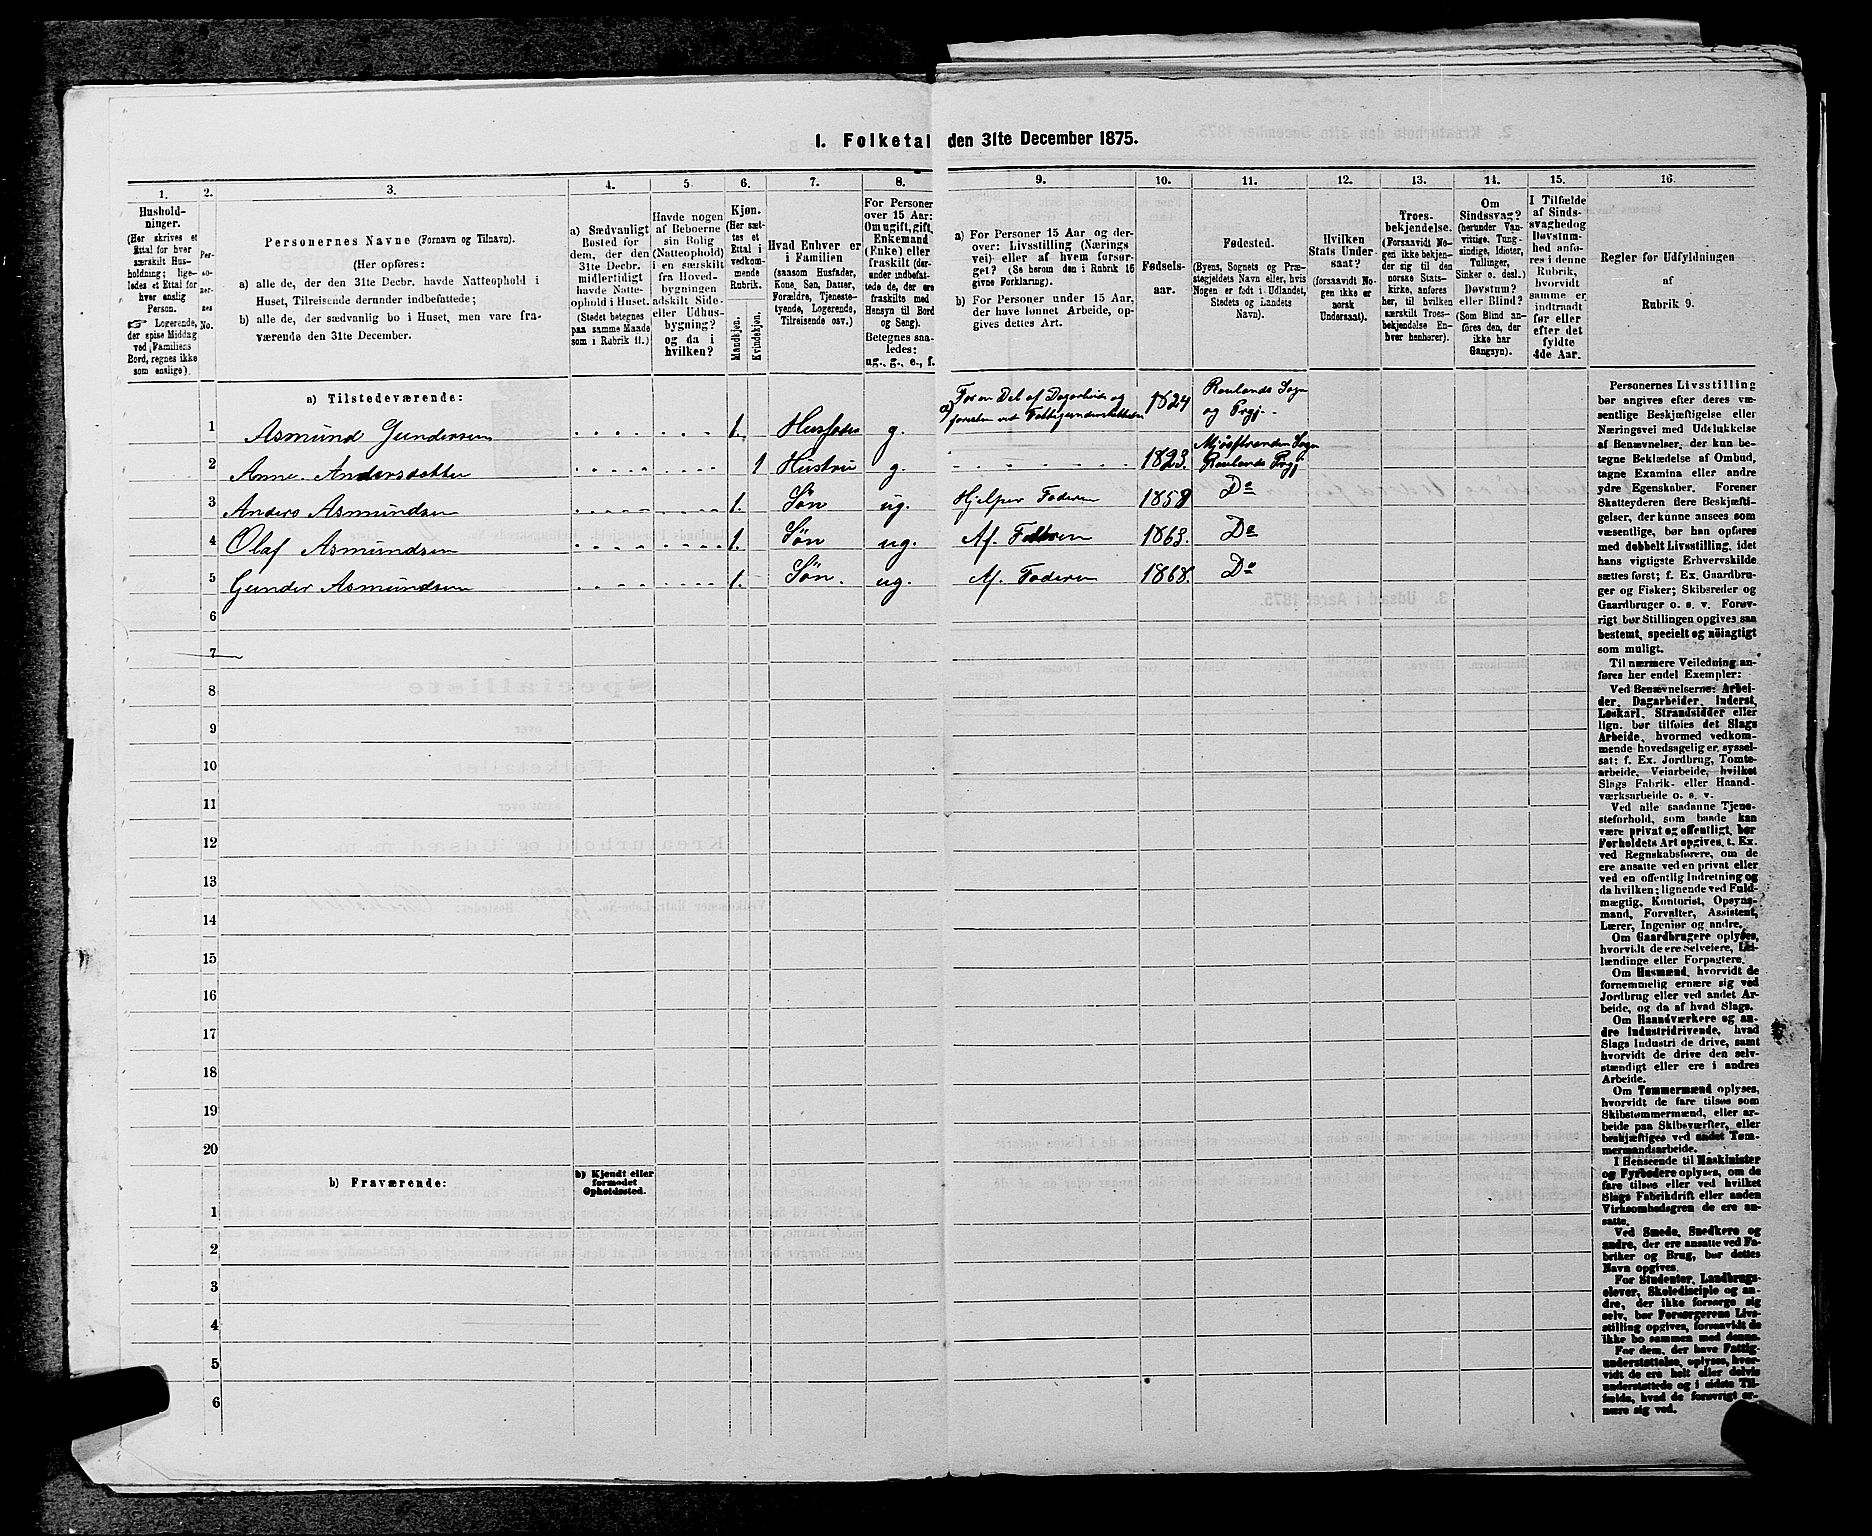 1. Folketal den 31te December 1875.
1. 2. 3. 4. 5. 6. 7. 8. 9. 10. 11. 12. 13. 14. 15. 16.
Hushold-
ninger.
(Her skrives et
Ettal for hver
særskilt Hus-
holdning; lige-
ledes et Ettal for
hver enslig
Person.
☞ Logerende,
der spise Middag
ved Familiens
Bord, regnes ikke
som enslige).
Per-
so-
ner-
nes
No.
Personernes Navne (Fornavn og Tilnavn).
(Her opføres:
a) alle de, der den 31te Decbr. havde Natteophold i
Huset, Tilreisende derunder indbefattede;
b) alle de, der sædvanlig bo i Huset, men vare fra-
værende den 31te December.
a) Sædvanligt
Bosted for
dem, der den
31te Decbr.
midlertidigt
havde Natte-
ophold i Huset.
(Stedet betegnes
paa samme Maade
som i Rubrik 11.)
Havde nogen
af Beboerne
sin Bolig
(Natteophold)
i en særskilt
fra Hoved-
bygningen
adskilt Side-
eller Udhus-
bygning?
og da i
hvilken?
Kjøn.
(Her sæt-
tes et
Ettal i
vedkom-
mende
Rubrik.
Mandkjøn.
Kvindekjøn.
Hvad Enhver er
i Familien
(saasom Husfader,
Kone, Søn, Datter,
Forældre, Tjeneste-
tyende, Logerende,
Tilreisende osv.)
For Personer
over 15 Aar:
Om ugift, gift,
Enkemand
(Enke) eller
fraskilt (der-
under indbefat-
tede de, der ere
fraskilte med
Hensyn til Bord
og Seng).
Betegnes saa-
ledes:
ug., g., e., f.
a) For Personer 15 Aar og der-
over: Livsstilling (Nærings
vei) eller af hvem forsør-
get? (Se herom den i Rubrik 16
givne Forklaring).
b) For Personer under 15 Aar,
der have lønnet Arbeide, op-
gives dettes Art.
Fødsels-
aar.
Fødested.
(Byens, Sognets og Præ-
stegjeldets Navn eller, hvis
Nogen er født i Udlandet,
Stedets og Landets
Navn).
Hvilken
Stats Under-
saat?
(forsaavidt No-
gen ikke er
norsk
Undersaat).
Troes-
bekjendelse.
(Forsaavidt No-
gen ikke bekjen-
der sig til den
norske Stats-
kirke, anføres
her, til hvilken
særskilt Troes-
bekjendelse En-
hver henhører).
Om
Sindssvag?
(herunder Van-
vittige, Tung-
sindige, Idioter,
Tullinger,
Sinker o. desl.)
Døvstum?
eller Blind?
(Som Blind an-
føres den, der
ikke har
Gangsyn).
I Tilfælde
af Sinds-
svaghed og
Døvstum-
hed anfø-
res i denne
Rubrik,
hvorvidt
samme er
indtraadt
før eller
efter det
fyldte
4de Aar.
Regler for Udfyldningen
af
Rubrik 9.
a) Tilstedeværende:
1 Asmund Gundersen 1. Husfader g. a) For en Del af Dagarbeide og forresten ved Fattigunderstøttelse 1824 Raulands Sogn og Prgj.
2 Anne Andersdotter 1 Hustru g. 1823. Mjøsstranden Sogn Raulands Prgj
3 Anders Asmundsen 1. Søn ug. Hjelper Faderen 1858 Do
4 Olaf Asmundsen 1. Søn ug. Af. Faderen 1863. Do
5 Gunder Asmundsen 1. Søn. ug. Af. Faderen 1868. Do
6
7
8
9
10
11
12
13
14
15
16
17
18
19
20
b) Fraværende:
b) Kjendt eller
formodet
Opholdssted.
1
2
3
4
5
6
Personernes Livsstilling
bør angives efter deres væ-
sentlige Beskjæftigelse eller
Næringsvei med Udelukkelse
af Benævnelser, der kun be-
tegne Beklædelse af Ombud,
tagne Examina eller andre
ydre Egenskaber. Forener
Skatteyderen flere Beskjæfti-
gelser, der kunne ansees som
væsentlige, bør han opføres
med dobbelt Livsstilling, idet
hans vigtigste Erhvervskilde
sættes først; f. Ex. Gaardbru-
ger og Fisker; Skibsreder og
Gaardbruger o. s. v. Forøv-
rigt bør Stillingen opgives saa
bestemt, specielt og nøiagtigt
som muligt.
Til nærmere Veiledning an-
føres her endel Exempler:
Ved Benævnelserne: Arbei-
der, Dagarbeider, Inderst,
Løskarl, Strandsidder eller
lign. bør tilføies det Slags
Arbeide, hvormed vedkom-
mende hovedsagelig er syssel-
sat; f. Ex. Jordbrug, Tomte-
arbeide, Veiarbeide, hvilket
Slags Fabrik- eller Haand-
værksarbeide o. s. v.
Ved alle saadanne Tjene-
steforhold, som baade kan
være privat og offentligt, bør
Forholdets Art opgives, t. Ex.
ved Regnskabsførere, om de
ere ansatte ved en privat eller
ved en offentlig Indretning og
da hvilken; lignende ved Fuld-
mægtig, Kontorist, Opsyns-
mand, Forvalter, Assistent,
Lærer, Ingeniør og andre.
Om Gaardbrugere oplyses,
hvorvidt de ere Selveiere, Lei-
lændinge eller Forpagtere.
Om Husmænd, hvorvidt de
fornemmelig ernære sig ved
Jordbrug eller ved andet Ar-
beide, og da af hvad Slags.
Om Haandværkere og an-
dre Industridrivende, hvad
Slags Industri de drive, samt
hvorvidt de drive den selv-
stændigt eller ere i andres
Arbeide.
Om Tømmermænd oplyses,
hvorvidt de fare tilsøs som
Skibstømmermænd, eller ar-
beide paa Skibsværfter, eller
beskjæftiges ved andet Tøm-
mermandsarbeide.
I Henseende til Maskinister
og Fyrbødere oplyses, om de
fare tilsøs eller ved hvilket
Slags Fabrikdrift eller anden
Virksomhedsgren de ere an-
satte.
Ved Smede, Snedkere og
andre, der ere ansatte ved Fa-
briker og Brug, bør dettes
Navn opgives.
For Studenter, Landbrugs-
elever, Skoledisciple og an-
dre, der ikke forsørge sig
selv, bør Forsørgerens Livs-
stilling opgives, forsaavidt de
ikke bo sammen med denne.
For dem, der have Fattig-
understøttelse, oplyses, hvor-
vidt de ere helt eller delvis
understøttede og i sidste Til-
fælde, hvad de forøvrigt er-
nære sig ved.